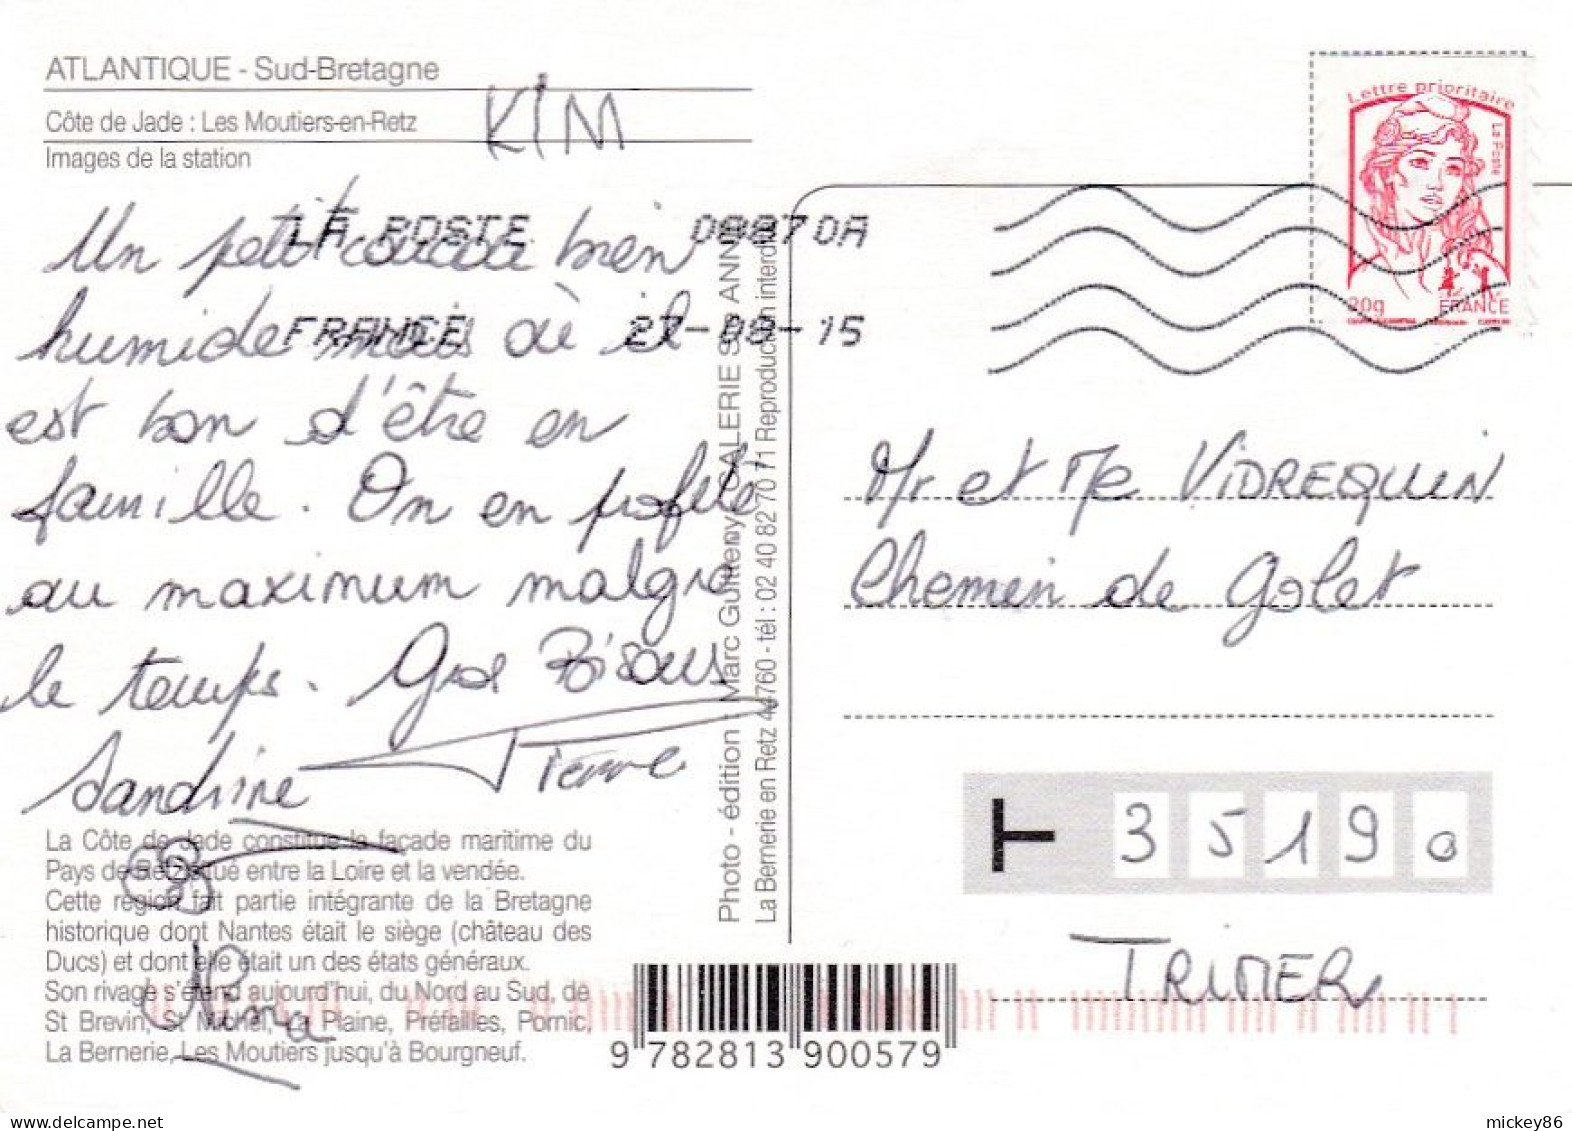 ATLANTIQUE - Sud-Bretagne
Côte de Jade : Les Moutiers-en-Retz
Images de la station
KIM
Un petit coucou bien
humide mais où il
est bon d'être en
famille. On en profite
au maximum malgré
le temps. Gros Bisous
Sandrine Pierre
La Côte de Jade constitue la façade maritime du
Pays de Retz situé entre la Loire et la vendée.
Cette région fait partie intégrante de la Bretagne
historique dont Nantes était le siège (château des
Ducs) et dont elle était un des états généraux.
Son rivage s'étend aujourd'hui, du Nord au Sud, de
St Brevin, St Michel, La Plaine, Préfailles, Pornic,
La Bernerie, Les Moutiers jusqu'à Bourgneuf.
LA POSTE 08870A
FRANCE 27-08-15
Photo - édition : Marc Guitteny GALERIE STE ANNE
La Bernerie en Retz 44760 - tél : 02 40 82 70 71 Reproduction interdite
9 782813 900579
Lettre prioritaire
La Poste
20g
FRANCE
Mr et Me VIDREQUIN
Chemin de Golet
T 35190
TRIMER
mickey86